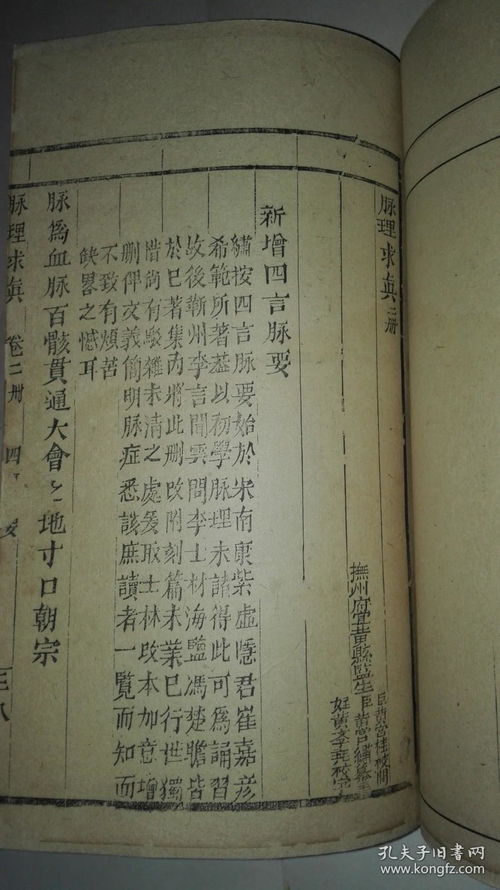 脉理求真 二冊
撫州府宜黃縣監生
臣黃宮繡
新增四言脉要
繡按四言脉要始於宋南康紫虛隱君崔嘉彥
希範所著葢以初學脉理未諳得此可為誦習
故後蘄州李言聞雲間李士材海鹽馮楚瞻皆
於巳著集內將此删改附刻篇末葉巳行世獨
惜尚有駁雜未清之處爰取士林改本加意增
删俾文義簡明脉症悉該庶讀者一覽而知而
不致有煩苦
缺畧之憾耳
脉為血脉百骸貫通大會之地寸口朝宗
脉理求真 卷二冊 四 要
孔夫子旧書网
www.kongfz.com